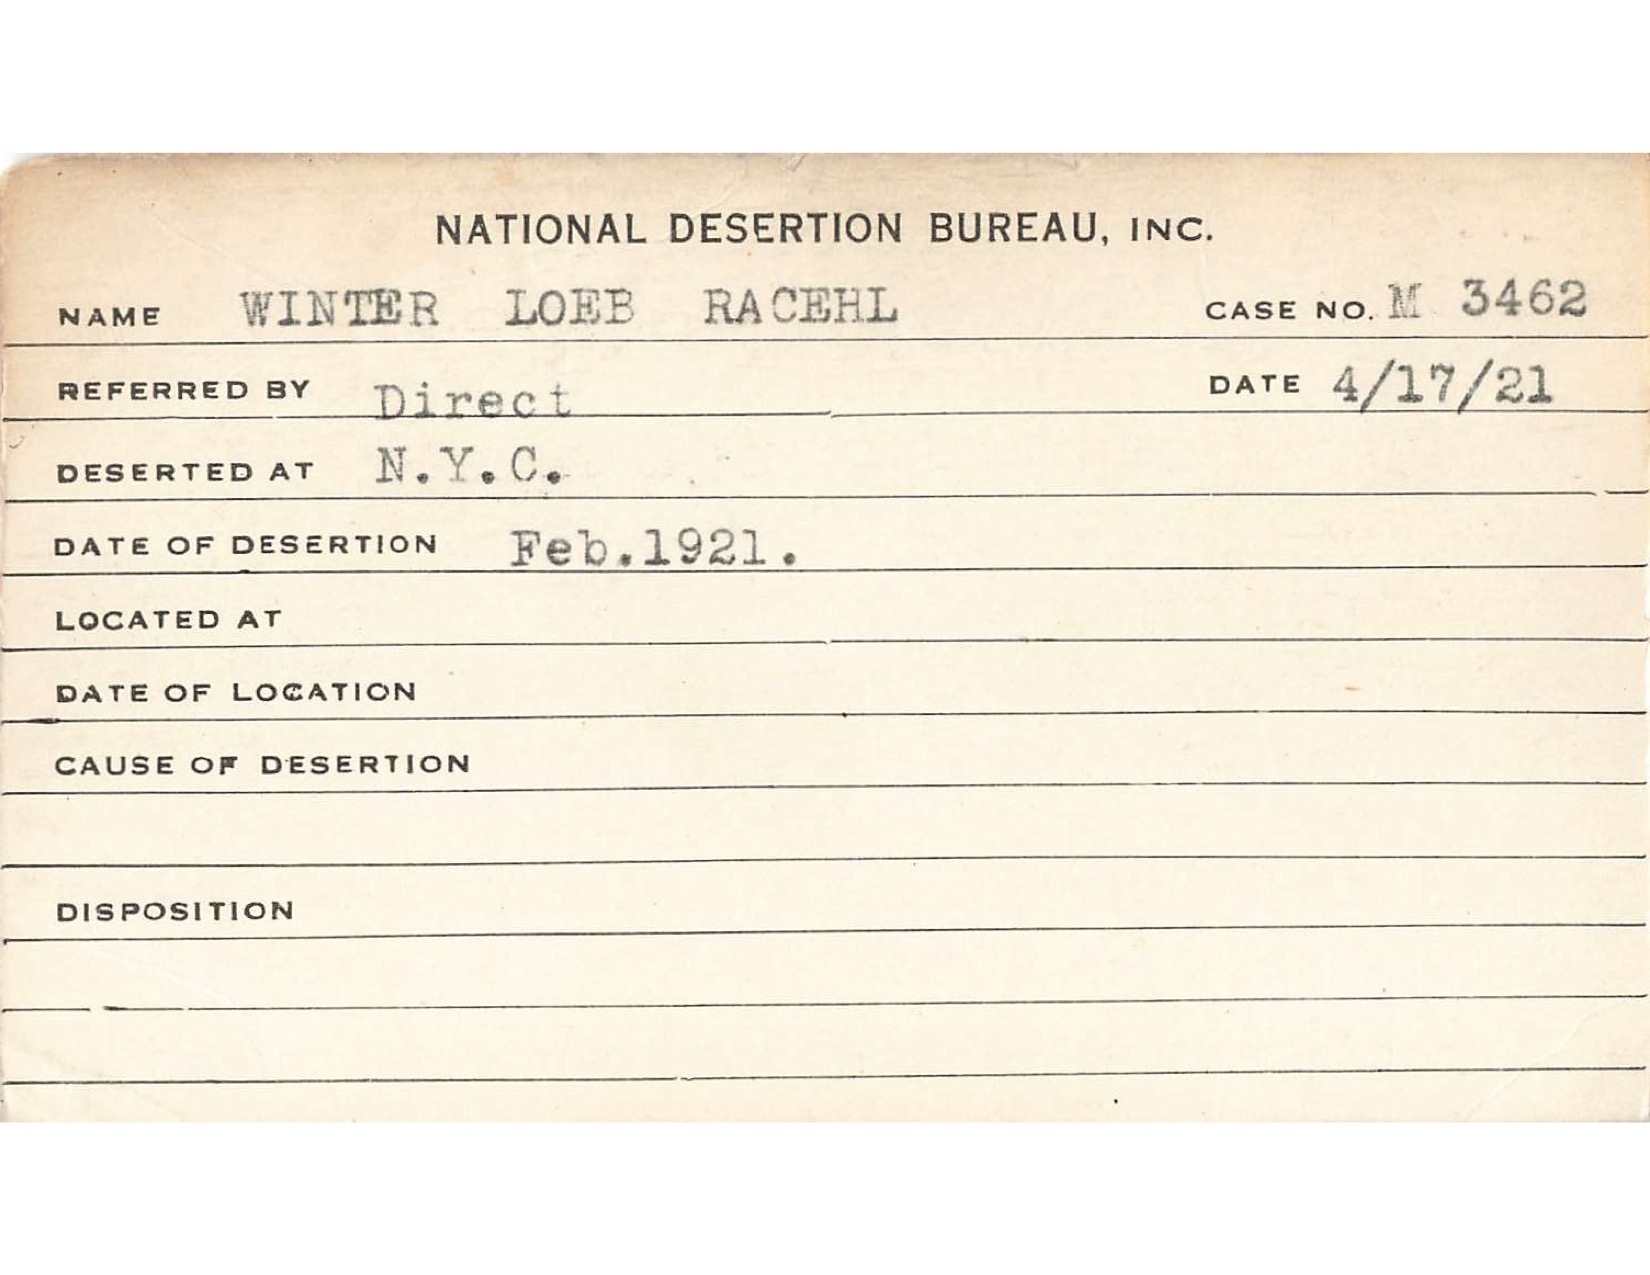 NATIONAL DESERTION BUREAU, INC.
NAME WINTER LOEB RACEHL CASE NO. M 3462
REFERRED BY Direct DATE 4/17/21
DESERTED AT N.Y.C.
DATE OF DESERTION Feb.1921.
LOCATED AT
DATE OF LOCATION
CAUSE OF DESERTION
DISPOSITION